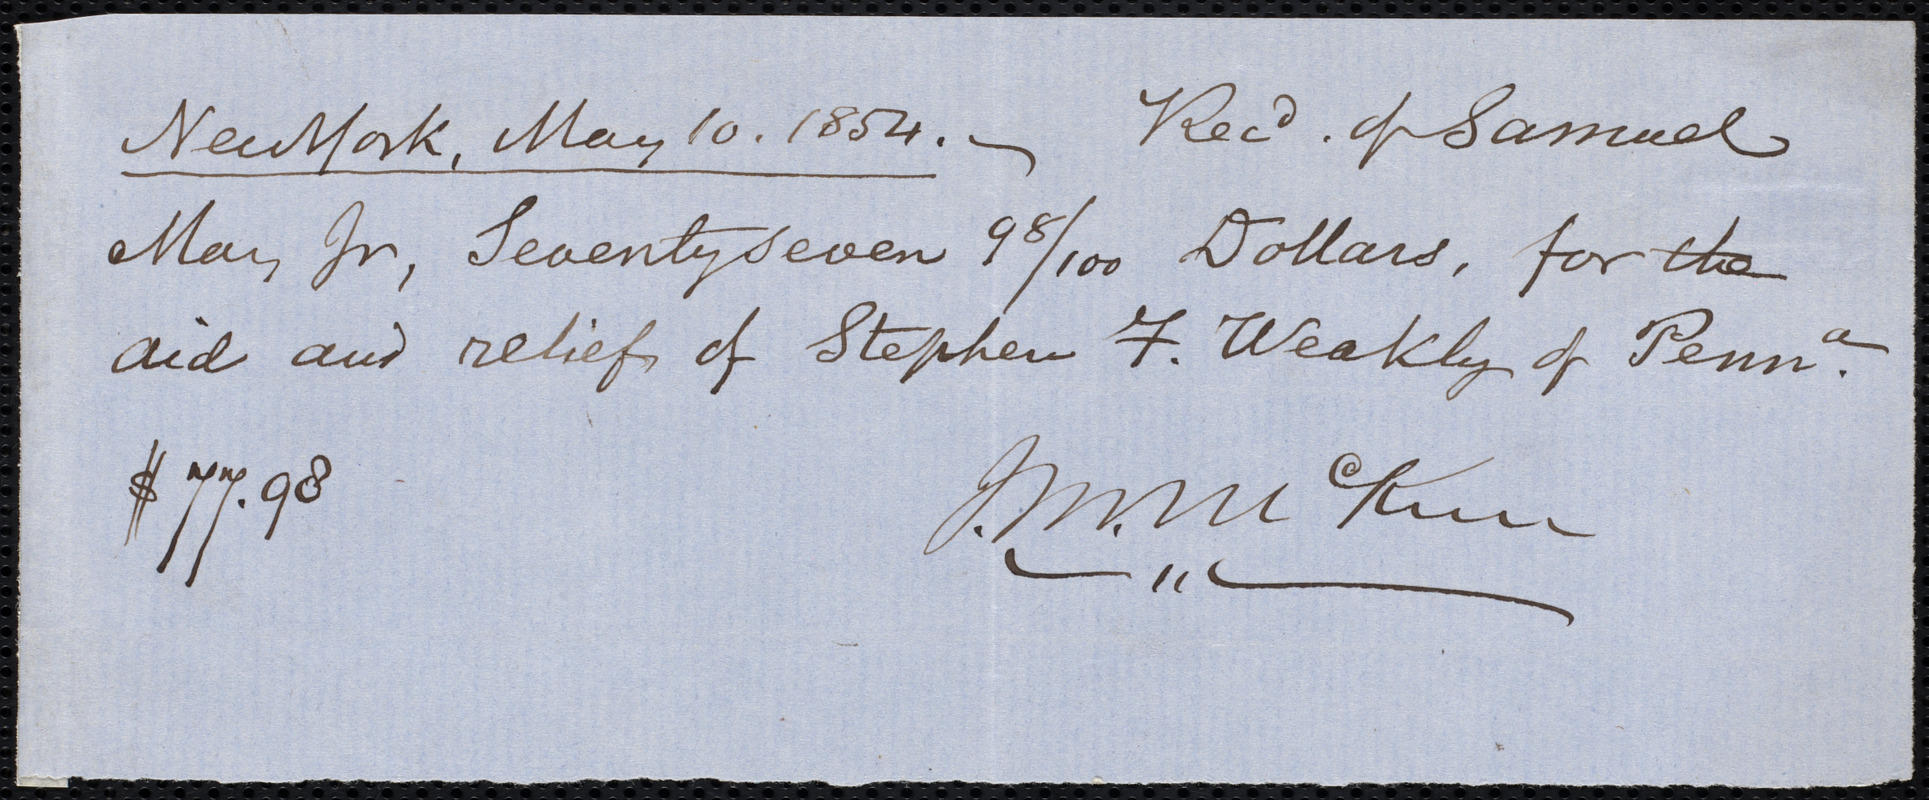 New York, May 10. 1854. — Rec'd. of Samuel
May Jr, Seventy seven 98/100 Dollars, for the
aid and relief of Stephen F. Weakly of Penna.
$77.98 J. M. McKim